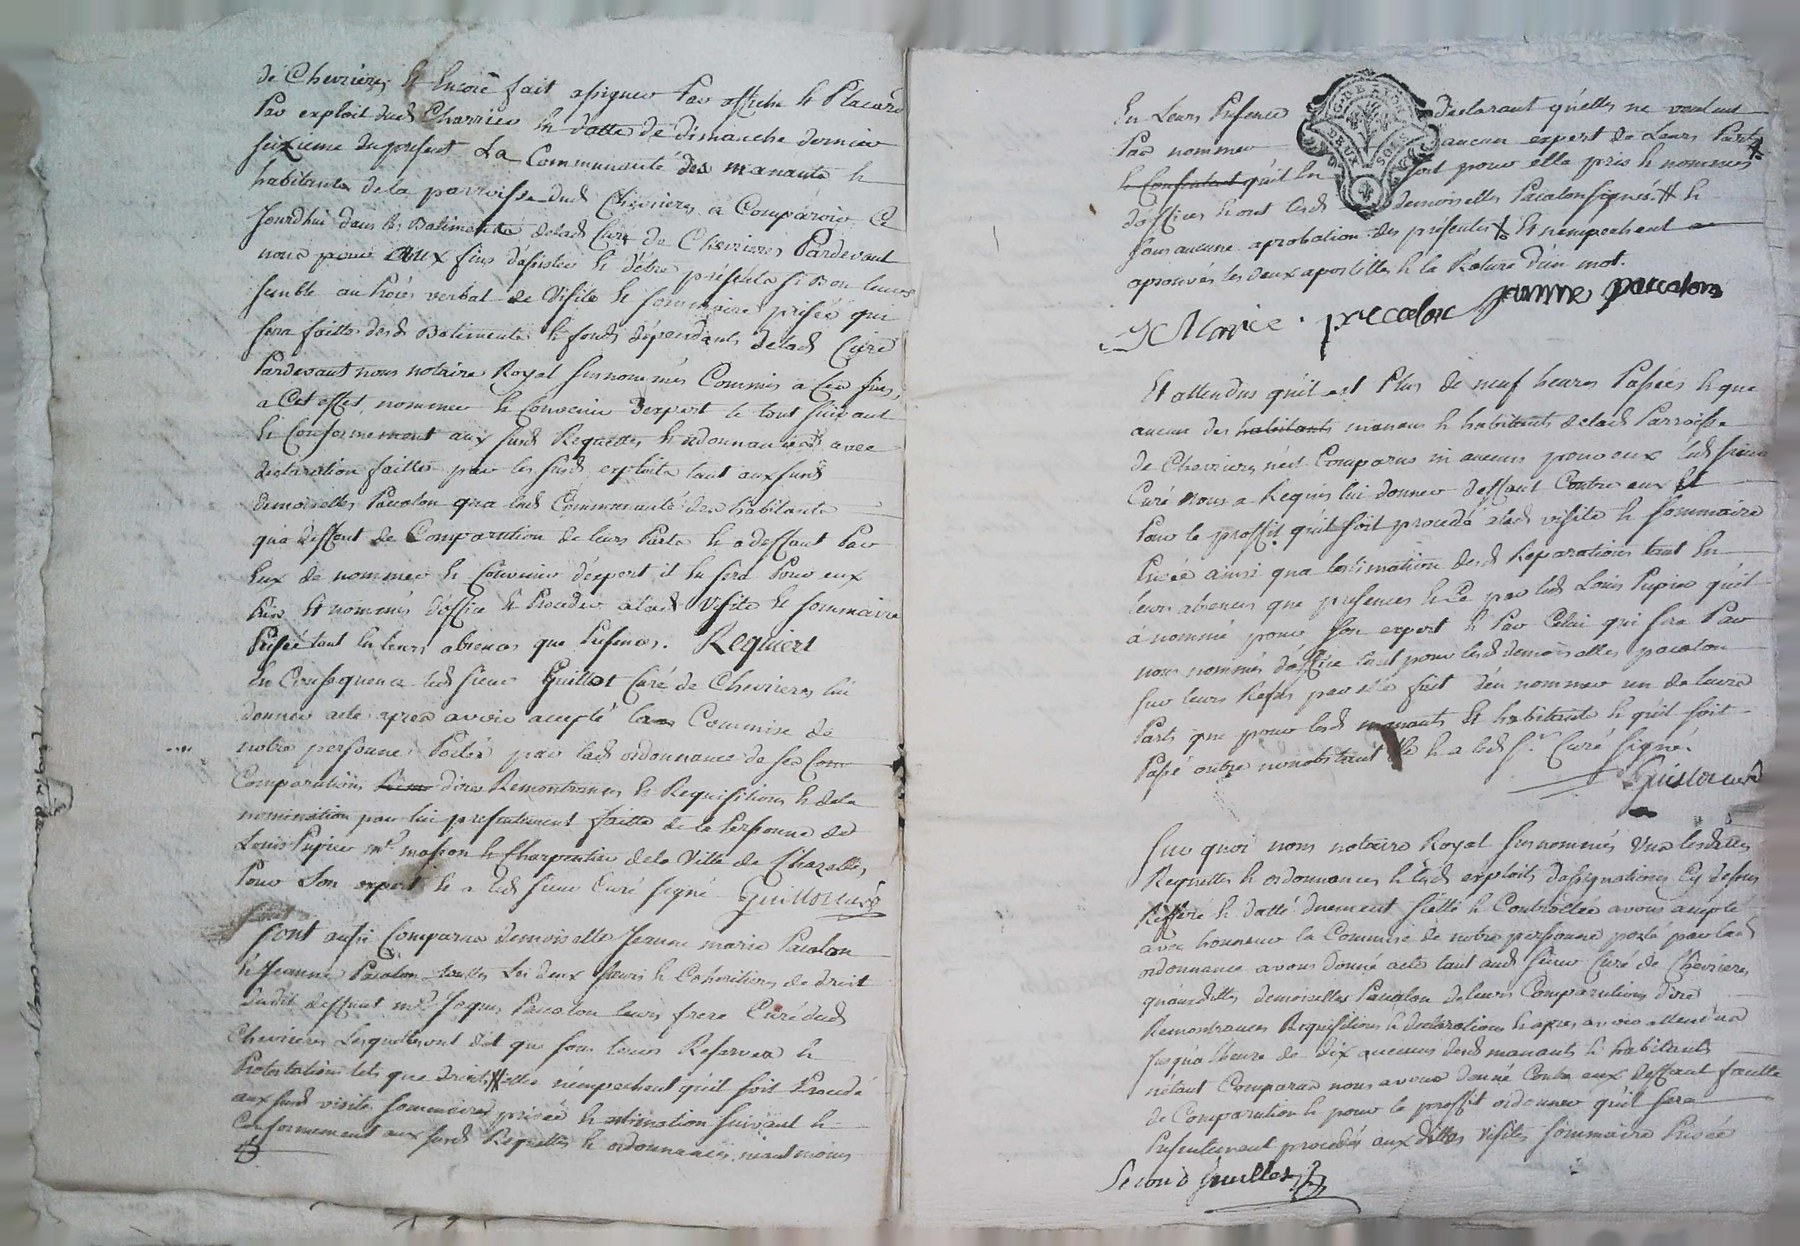 de Chevrieres et encore fait assigner Par affiche et Placard
Par exploit dud Charrier en datte de dimanche dernier
seizieme du present La Communauté des manants et
habitants de la parroisse dud Chevrieres a Comparoir Ce
jourdhui dans les Batiments de lad Cure de Chevrieres Pardevant
nous pour aux fins d'assister et d'être présents si Bon leur
semble au Procès verbal de Visite et sommaire prisée qui
sera faitte desd Batiments et fonds dépendants de lad Cure
Pardevant nous notaire Royal susnommés Commis a Ces fins,
a Cet effet nommer et Convenir d'expert le tout suivant
et Conformement aux susd Requettes et ordonnances avec
declaration faittes par les susd exploits tant aux susd
demoiselles Pacalon qua lad Communauté des habitants
qua deffaut de Comparution de leurs Parts et a deffaut Par
Eux de nommer et Convenir d'expert il en sera Pour eux
Pris et nommés d'office et Proceder a lad Visite et sommaire
Prisée tant en leurs absences que Presences. Requiert
En Consequence led sieur Guillot Curé de Chevrieres lui
donner acte apres avoir accepté la Commise de
notre personne Portée par lad ordonnance de ses Com
Comparutions dires Remontrances et Requisitions et de la
nomination par lui presentement faitte de la Personne de
Louis Pupier mᵉ masson et Charpentier de la Ville de Chazelles
Pour Son expert et a led sieur Curé signé Guillot curé
Sont aussi Comparues demoiselle Jeanne marie Pacalon
et Jeanne Pacalon touttes Les deux sœurs et Cohéritieres de droit
dudit deffunt mʳᵉ Jaques Pacalon leurs frere Curé dud
Chevrieres Lesquelles ont dit que sous leurs Reserves et
Protestations tels que droits # elles n'empechent qu'il soit Procedé
aux susd visite sommaire prisée et estimation suivant et
Conformement aux susd Requettes et ordonnances, neant moins
En Leurs Presence declarant qu'elles ne veulent
Pas nommer aucun expert de Leurs Parts
et Consentent qu'il en soit pour elle pris et nommés
d'office et ont lesd demoiselles Pacalon signés # et
sans aucune aprobation des présentes et n'empechent
aprouvés les deux apostilles et la Rature d'un mot.
J Marie pacalon Jeanne pacalon
Et attendus qu'il est Plus de neuf heures Passées et que
aucun des habitants manans et habitants de lad Parroisse
de Chevrieres n'est Comparus ni aucuns pour eux led sieur
Curé nous a Requis lui donner deffaut Contre eux Et
Pour le proffit qu'il soit procédé a lad visite et sommaire
Prisée ainsi qua lestimation desd Reparations tant en
leurs absences que presences et Ce par led Louis Pupier qu'il
a nommé pour son expert et Par Celui qui sera Par
nous nommés d'office tant pour lesd demoiselles pacalon
sur leurs Refus par elle fait d'en nommer un de leurs
Parts que pour lesd manants Et habitants et qu'il soit
Passé outre nonobstant et a led sʳ Curé signé.
Guillot curé
Sur quoi nous notaire Royal susnommés Vus lesdittes
Requettes et ordonnances et lesd exploits d'assignations Cy dessus
Refferé et datté duement scellé et Controllée avons accepté
avec honneur la Commise de notre personne porté par lad
ordonnance avons donné acte tant aud sieur Curé de Chevrieres
qu'auxdittes demoiselles Pacalon de leurs Comparutions dire
Remontrances Requisitions et declarations et apres avoir attendus
jusqu'a lheure de dix aucuns desd manants et habitants
n'etant Comparus nous avons donné Contre eux deffaut faute
de Comparution et pour le proffit ordonner qu'il sera
Presentement procedés aux dittes visites sommaire Prisée
Second feuillet
G. DE LYON
DEUX SOLS